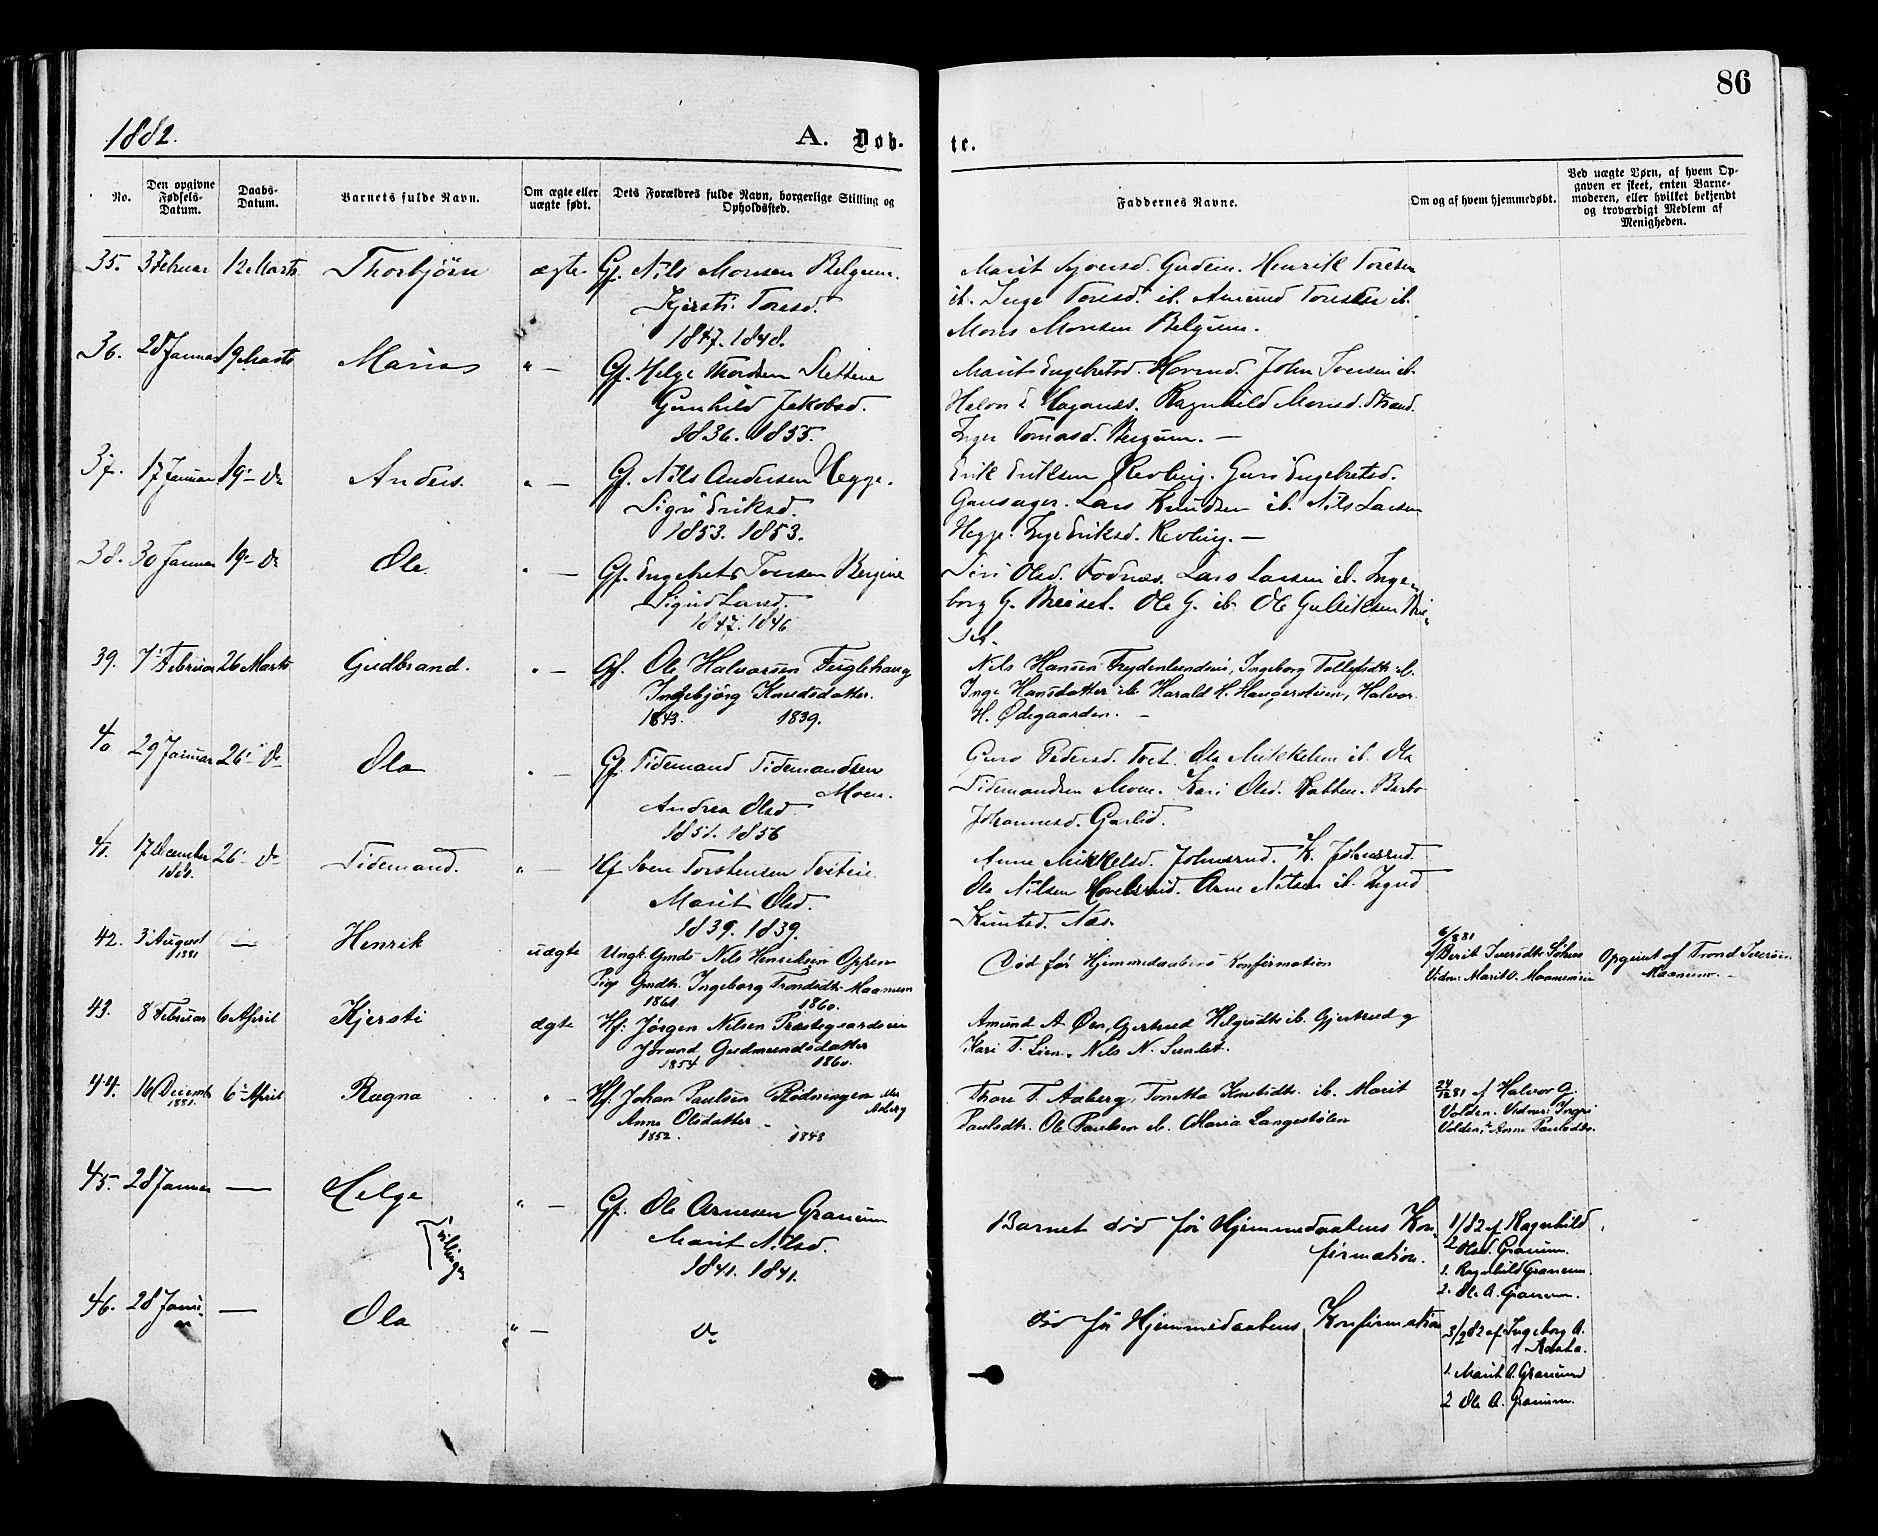 86
1882.
A. Døb-
te.
No.
Den opgivne Fødsels-Datum.
Daabs-Datum.
Barnets fulde Navn.
Om ægte eller uægte født.
Dets Forældres fulde Navn, borgerlige Stilling og Opholdssted.
Faddernes Navne.
Om og af hvem hjemmedøbt.
Ved uægte Børn, af hvem Opgaven er skeet, enten Barnemoderen, eller hvilket bekjendt og troværdigt Medlem af Menigheden.
35. 3 Februar 12 Marts Thorbjörn ægte Gf. Nils Monsen Belgum.
Kjersti Toresd.
1847. 1848.
Marit Henrik Toresen
ib. Inge Toresd. ib. Amund Toresen ib.
Mons Monsen Belgum.
36. 28 Januar 19 Marts Maria " — Gf. Helge Thordsen Slettene
Gunhild Jakobsd.
1836. 1855.
Marit Engebretsd. John Iversen ib.
Ragnhild Monsd. Strand.
Inger Tomasd. Bergum. —
37. 17 Januar 19 - Do Anders. " — Gf. Nils Andersen Hegge.
Sigri Eriksd.
1853. 1853.
Erik Eriksen Revling. Guri Engebretsd.
Gausager. Lars Knudsen ib. Nils Larsen
Hegge. Inge Eriksd. Revling. —
38. 30 Januar 19 - Do Ole. " — Gf. Engebret Iversen Bergene
Sigrid Larsd.
1847. 1846
Siri Olsd. Fodnes. Lars Larsen ib. Inge-
borg G. Breiset. Ole G. ib. Ole Gulliksen Brei-
set.
39. 7 Februar 26 Marts Gudbrand. " — Gf. Ole Halvorsen Fuglehaug
Ingebjörg Knudsdatter.
1843. 1839.
Nils Hansen Frydenlundsei, Ingeborg Tollefsdtr ib.
Inge Hansdatter ib. Harald H. Haugerstuen, Halvor
H. Ødegaarden. —
40 29 Januar 26 - Do Ola " — Gf. Tidemand Tidemandsen
Moen.
Andrea Olsd.
1851. 1856
Guro Pedersd. Tvet. Ola Mikkelsen ib. Ola
Tidemandsen Moen. Kari Olsd. Rabben. Barbo
Johannesd. Garlid.
41. 17 December 26 - Do Tidemand. " — Hf. Iver Torstensen Tveiten
Marit Olsd.
1839. 1839.
Anne Mikkelsd. Johnsrud. K. Johnsrud.
Ole Nilsen Hovelsrud. Arne Nilsen ib. Ingrid
Knutsd. Næs.
42. 3 August 1881 — Henrik uægte Ungk. Gmds. Nils Henriksen Oppen
Pige Gmdtr. Ingeborg Trondsdtr. Maanum
1861. 1860.
Död før Hjemmedaabens Konfirmation
6/8 81 af Berit Iversdtr
Vidn: Marit O. Maanumseie
Opgivet af Trond Iversen
Maanum. —
43. 8 Februar 6 April Kjersti ægte Hf: Jörgen Nelsen Præstegaardseie
Jörand Gudmundsdatter
1854 1860.
Amund A. Øen, Gjertrud Helgesdtr ib. Gjertrud og
Kari T. Lien. Nils N. Sundet.
44. 16 Decemb 1881. 6 April Ragna " — Hf: Johan Paulsen Rödningen eller
Aaberg
Anne Olsdatter
1852. 1848
Thore T. Aaberg, Tonetta Knutsdtr. ib. Marit
Paulsdtr. Ole Paulsen ib. Maria Langestölen
24/12 81 af Halvor G.
Volden. Vidner: Ingri
Volden, Anne Paulsdtr.
45. 28 Januar — Helge " — Gf. Ole Arnesen Granum
Marit Nilsd.
1841. 1841.
Tvillinger
Barnet död før Hjemmedaabens Kon-
firmation.
1/2 82 af Ragnhild
Olsd. Granum.
1. Ragnhild Granum.
2. Ole A. Granum.
46. 28 Janu-
ar — Ola " — Do
död før Hjemmedaabens Konfirmation
3/2 82 af Ingeborg A.
1 Marit A. Granum
2 Ole A. Granum.